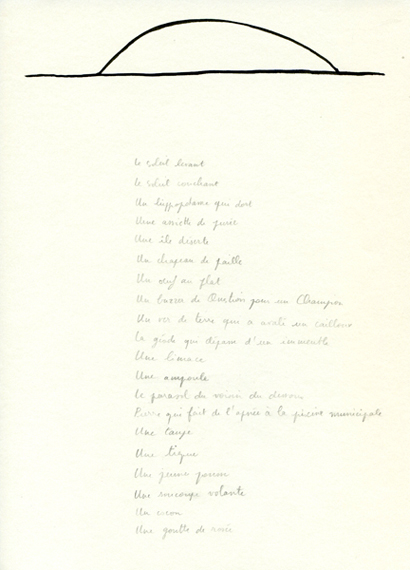 le soleil levant
le soleil couchant
Un hippopotame qui dort
Une assiette de purée
Une île déserte
Un chapeau de paille
Un œuf au plat
Un buzzer de Question pour un Champion
Un ver de terre qui a avalé un caillou
La qui dépasse d'un immeuble
Une limace
Une ampoule
Le parasol du voisin du dessous
Pierre qui fait de l'apnée à la piscine municipale
Une
Une
Une jeune
Une soucoupe volante
Un cocon
Une goutte de rosée